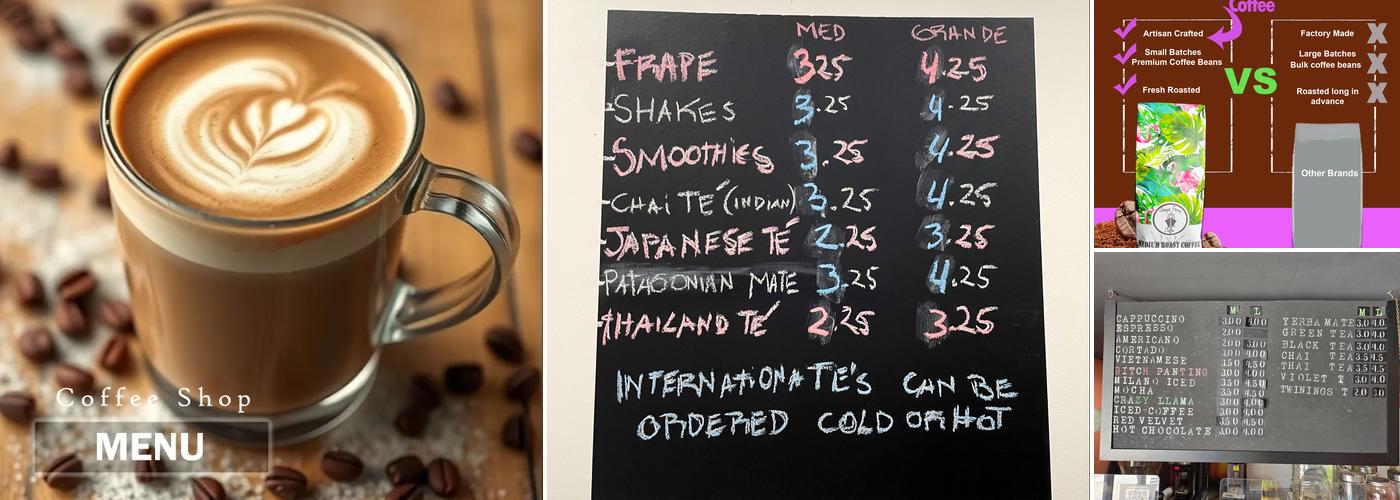 Coffee Shop
MENU
MED GRANDE
-FRAPE 3.25 4.25
-SHAKES 3.25 4.25
-SMOOTHIES 3.25 4.25
-CHAI TÉ (INDIAN) 3.25 4.25
-JAPANESE TÉ 2.25 3.25
-PATAGONIAN MATE 3.25 4.25
-THAILAND TÉ 2.25 3.25
INTERNATIONA TÉ'S CAN BE
ORDERED COLD OR HOT
Coffee
Artisan Crafted
Small Batches
Premium Coffee Beans
Fresh Roasted
VS
Factory Made
Large Batches
Bulk coffee beans
Roasted long in
advance
Other Brands
MEDIUM ROAST COFFEE
M L
CAPPUCCINO 3.00 4.00
ESPRESSO 2.00
AMERICANO 2.00 3.00
CORTADO 3.00 4.00
VIETNAMESE 3.50 4.50
BITCH PANTING 3.00 4.00
MILANO ICED 3.50 4.50
MOCHA 3.50 4.50
CRAZY LLAMA 3.00 4.00
ICED COFFEE 3.00 4.00
RED VELVET 3.50 4.50
HOT CHOCOLATE 3.00 4.00
M L
YERBA MATE 3.0 4.0
GREEN TEA 3.0 4.0
BLACK TEA 3.0 4.0
CHAI TEA 3.5 4.5
THAI TEA 3.5 4.5
VIOLET T 3.0 4.0
TWININGS T 2.0 3.0